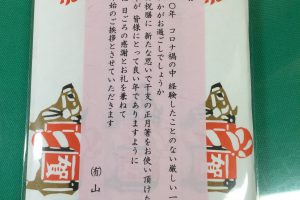 〇年 コロナ禍の中 経験したことのない厳しい一
かがお過ごしでしょうか
祝膳に 新たな思いで干支の正月箸をお使い頂けた
が 皆様にとって良い年でありますように
日ごろの感謝とお礼を兼ねて
始のご挨拶とさせていただきます
㈲山
賀
賀